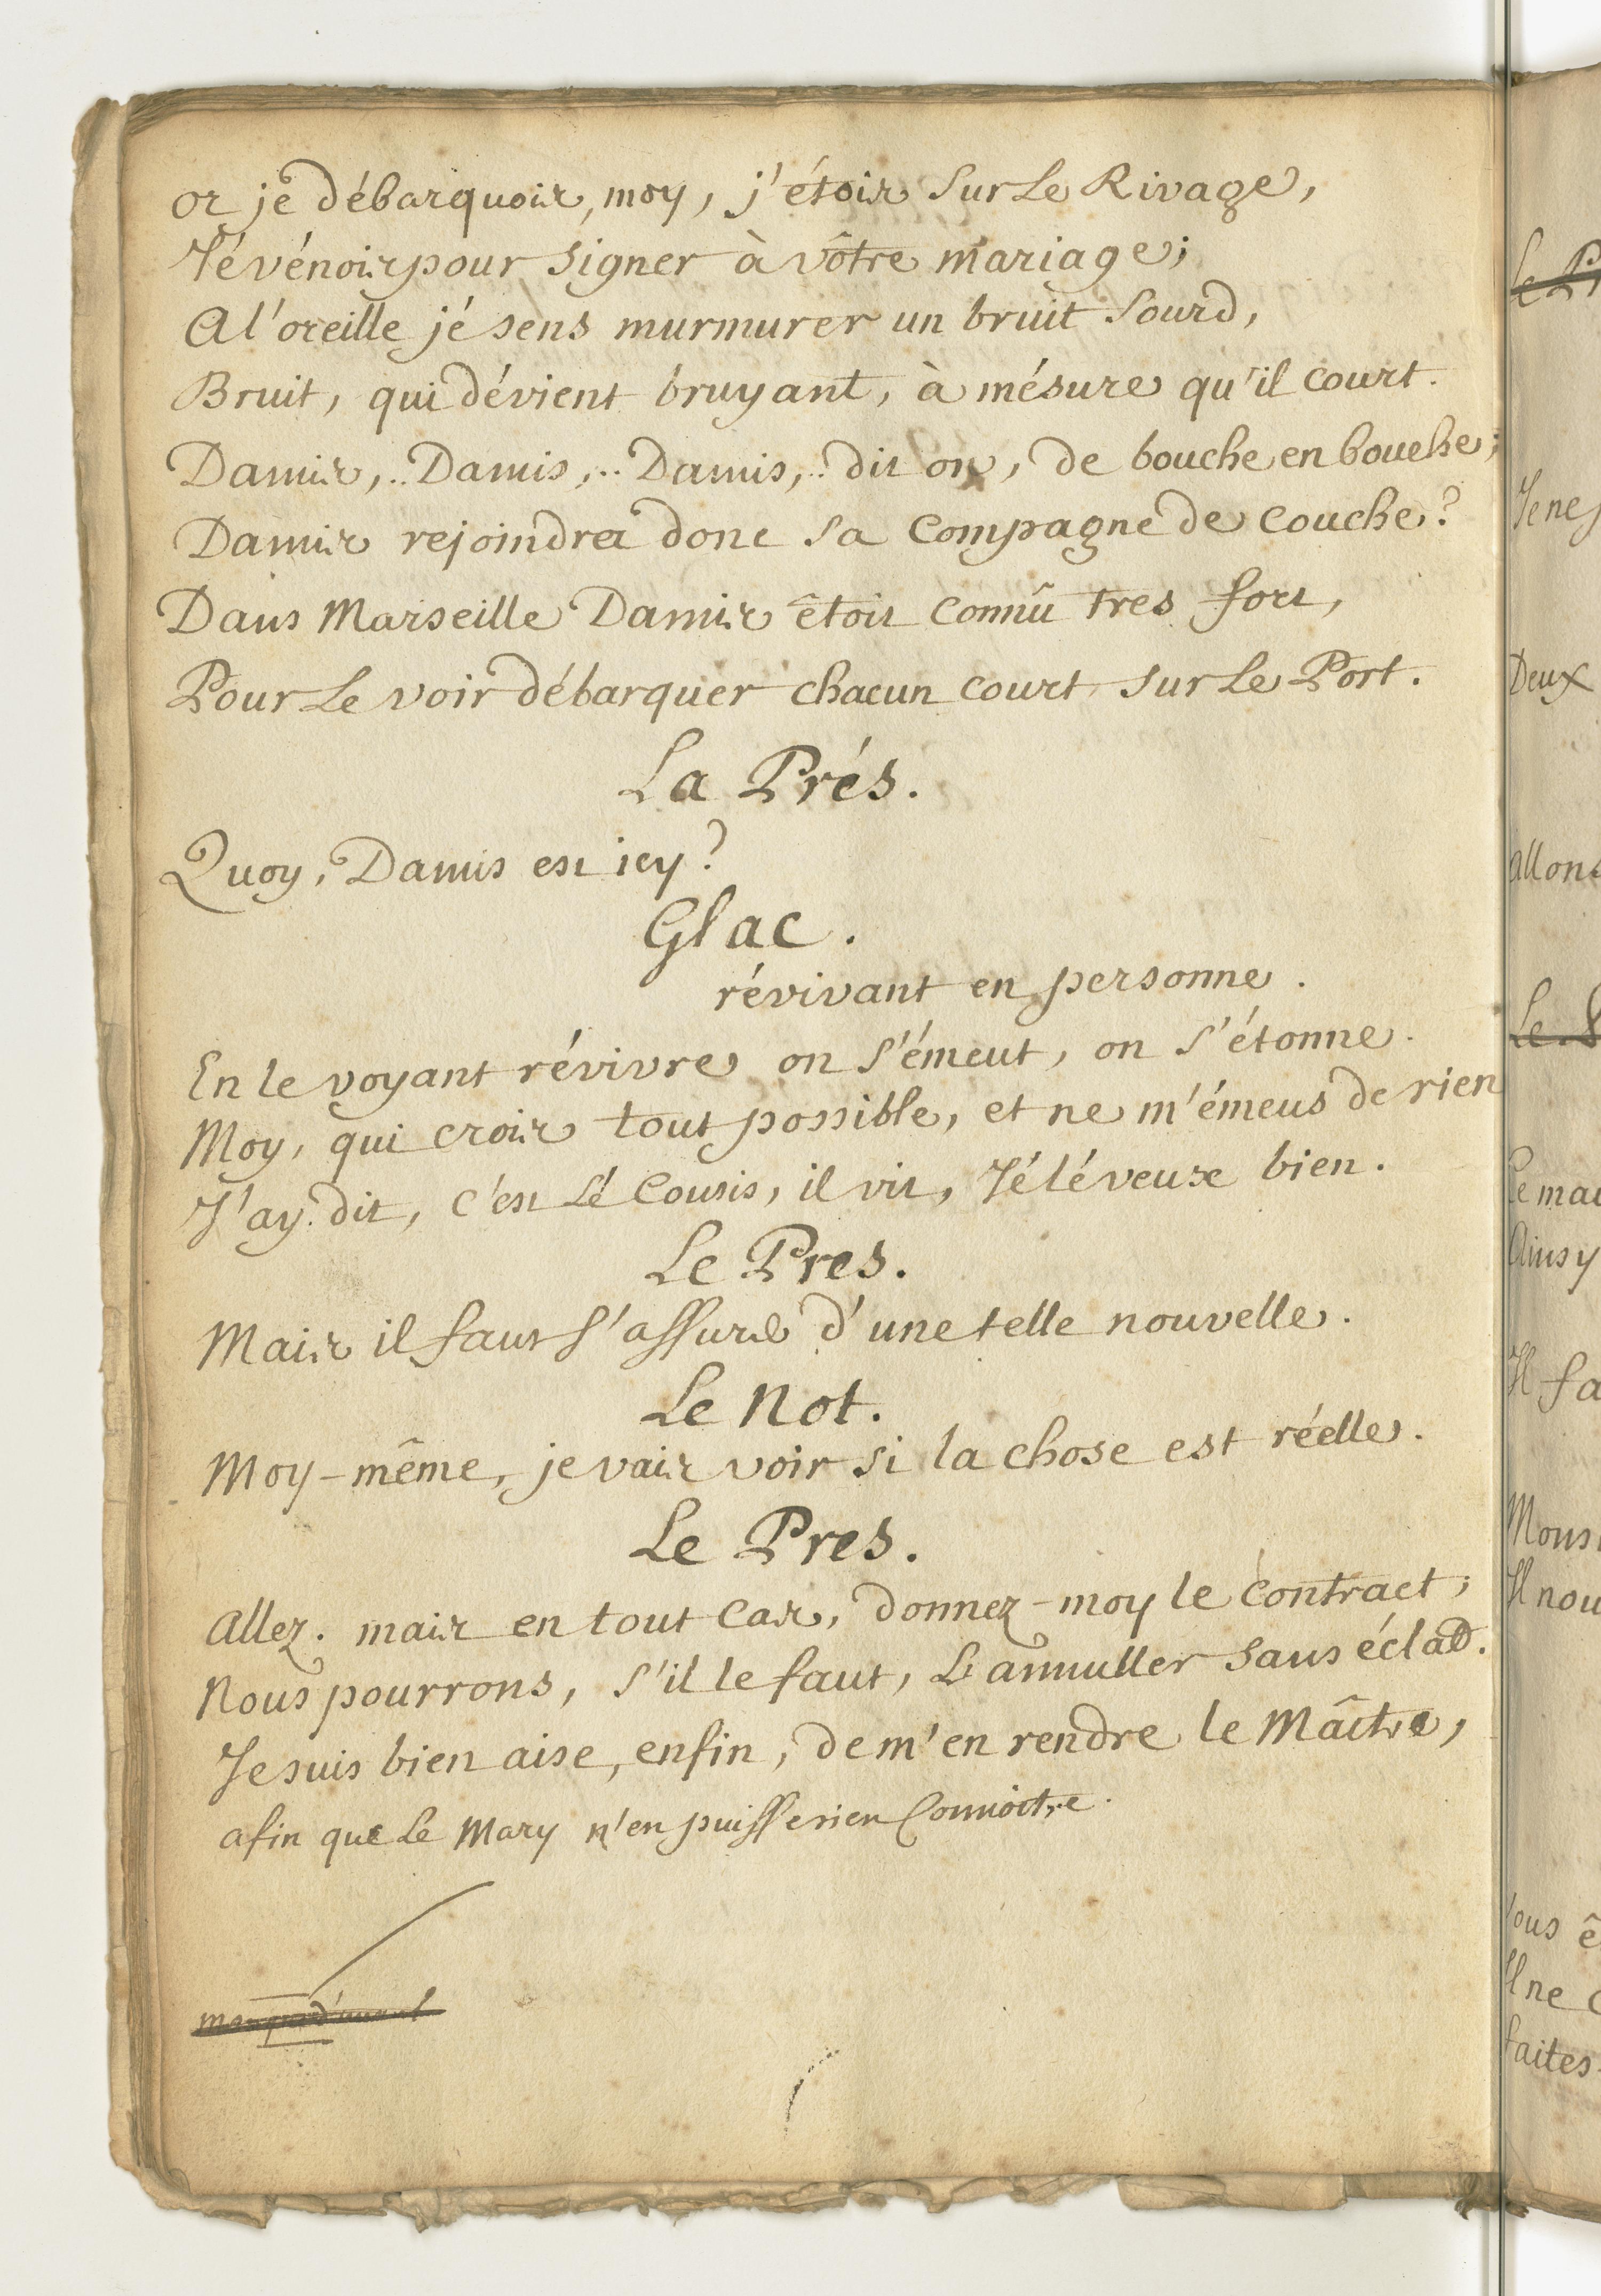 or je débarquois, moy, j'étois sur Le Rivage,
Jé vénois pour signer à vôtre mariage;
A l'oreille jé sens murmurer un bruit sourd,
Bruit, qui dévient bruyant, à mésure qu'il court.
Damis,.. Damis,.. Damis,.. dit on, de bouche en bouche;
Damis rejoindra donc sa Compagne de couche?
Dans Marseille Damis êtoit connû tres fort,
Pour Le voir débarquer chacun court sur Le Port.
La Prés.
Quoy, Damis est icy?
Glac.
révivant en personne.
En le voyant révivre on s'émeut, on s'étonne.
Moy, qui crois tout possible, et ne m'émeus de rien
J'ay dit, c'est Lé Cousis, il vit, Jé lé veux bien.
Le Pres.
Mais il faut s'assurer d'une telle nouvelle.
Le Not.
Moy-même, je vais voir si la chose est réelle.
Le Pres.
Allez. mais en tout Cas, donnez-moy le Contract;
Nous pourrons, s'il le faut, L'annuller sans éclat.
Je suis bien aise, enfin, de m'en rendre le Maître,
afin que Le Mary n'en puisse rien Connoître.
Le P
Je ne
Deux
Allons
Le
Ainsy
Il fa
Il nou
Vous ê
Il ne
faites